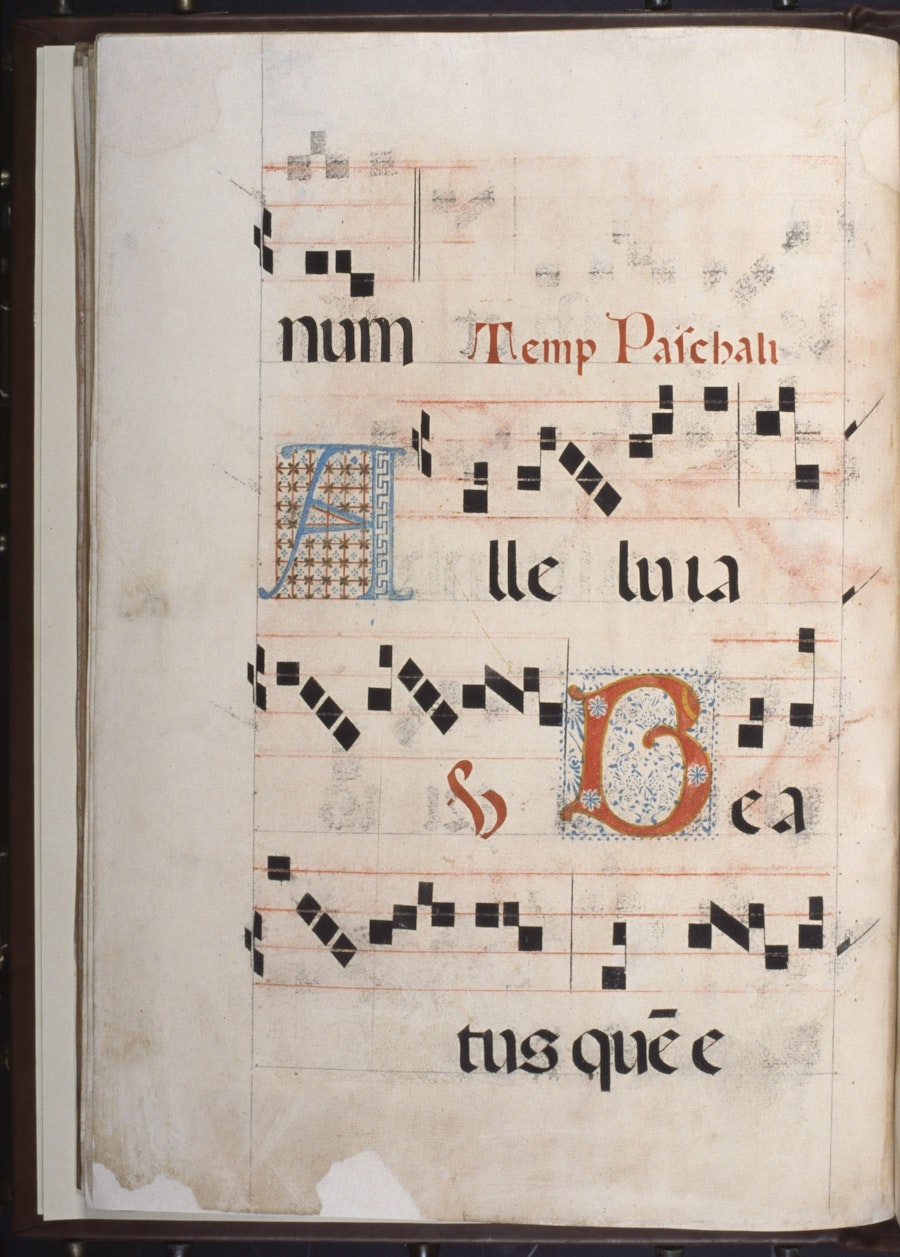 num Temp Paschali
Alle luia
℣ Bea
tus quē e